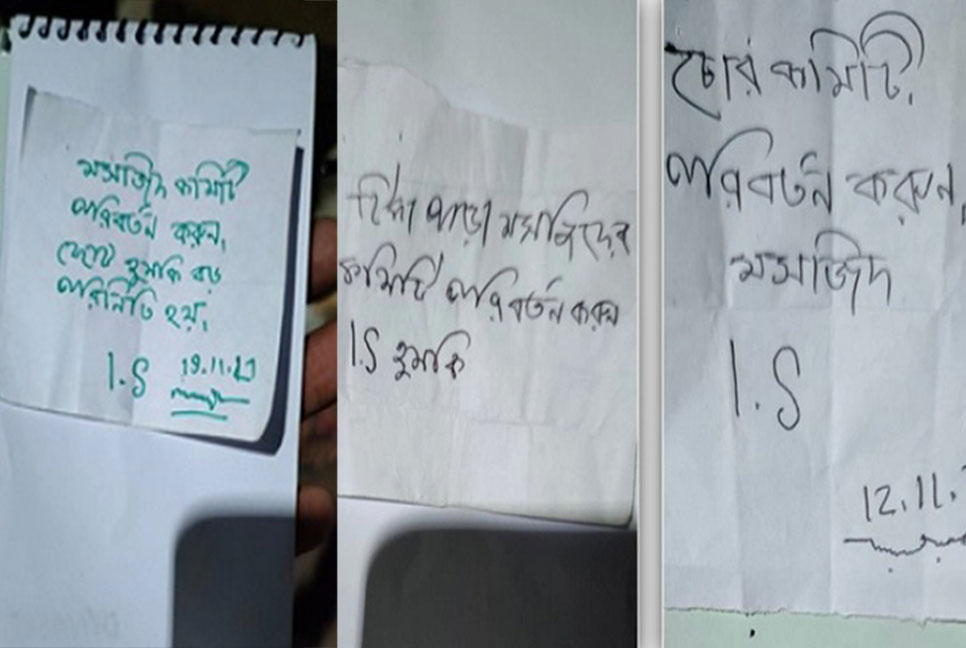 মসজিদ কমিটি
পরিবর্তন করুন,
ছোট হুমকি বড়
পরিনিতি হয়,
I.S 19.11.23
পাড়া মসজিদের
কমিটি পরিবর্তন করুন
I.S হুমকি
চোর কমিটি,
পরিবর্তন করুন,
মসজিদ
I.S
12.11.